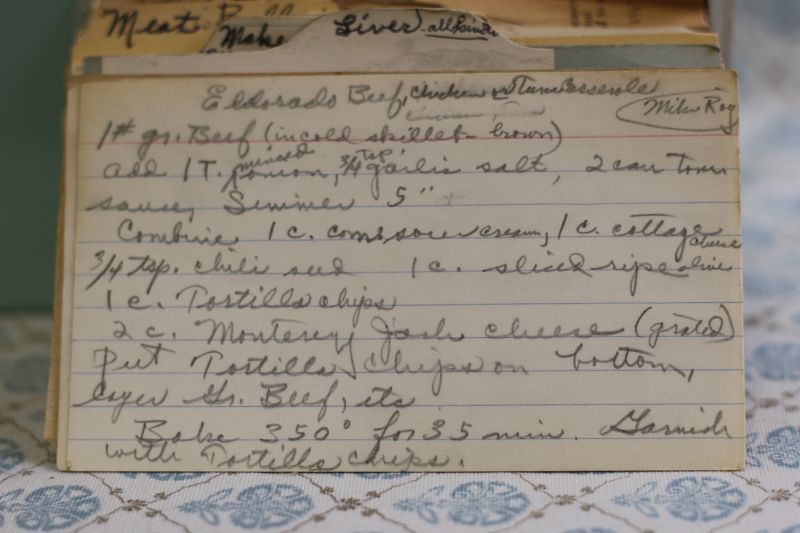 Meat Balls
Make Liver allkinds
Eldorado Beef, chicken or Tuna Casserole
Mike Roy
1# gr. Beef (in cold skillet - brown)
add 1 T. minced onion, 3/4 tsp garlic salt, 2 can tom
sauce, Simmer 5"
Combine 1 c. com. sour cream, 1 c. cottage cheese
3/4 tsp. chili seed 1 c. sliced ripe olive
1 c. Tortilla chips
2 c. Monterey Jack cheese (grated)
Put Tortilla chips on bottom,
layer Gr. Beef, etc
Bake 350° for 35 min. Garnish
with Tortilla chips.